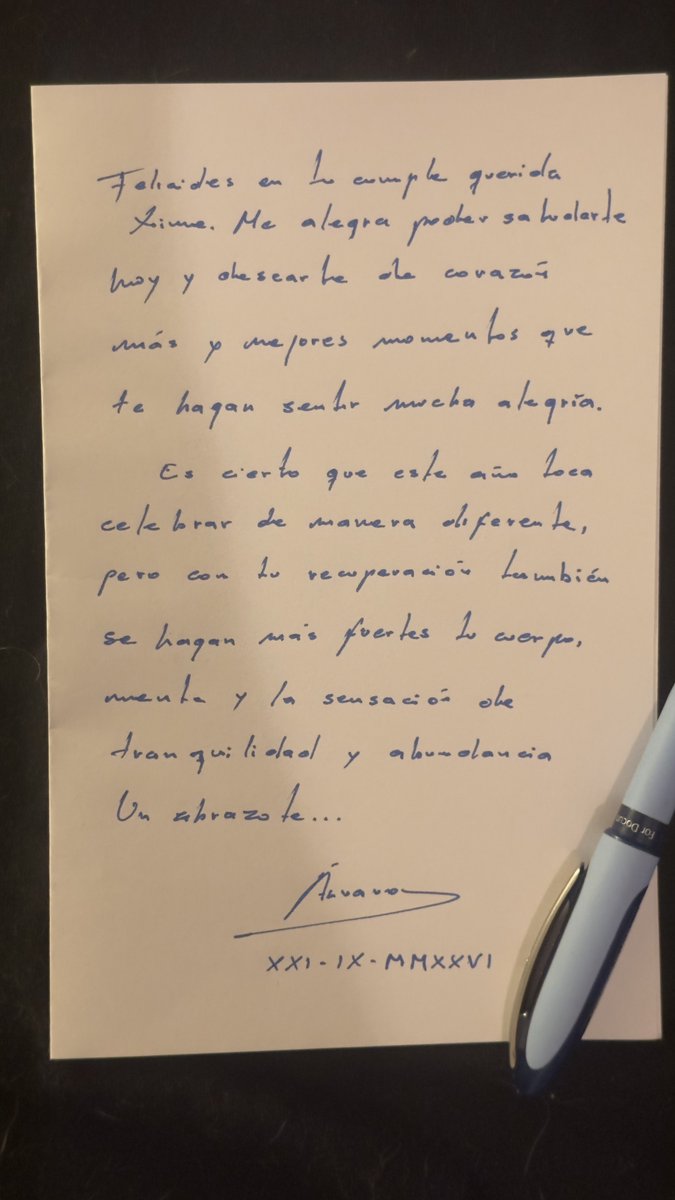 Felicides en tu cumple querida
Xime. Me alegra poder saludarte
hoy y desearte de corazón
más y mejores momentos que
te hagan sentir mucha alegría.
Es cierto que este año toca
celebrar de manera diferente,
pero con tu recuperación también
se hagan más fuertes tu cuerpo,
mente y la sensación de
tranquilidad y abundancia
Un abrazote...
Álvaro
XXI-IX-MMXXVI
for Docu